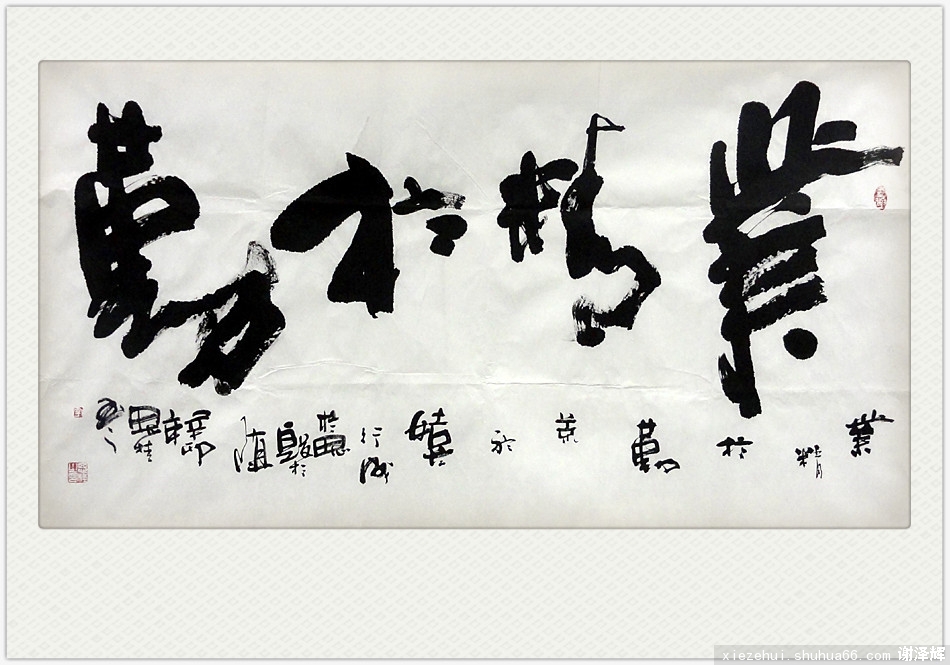 業精於勤
業精於勤荒於嬉行成於思毀於隨
xiezehui.shuhua66.com 谢泽辉